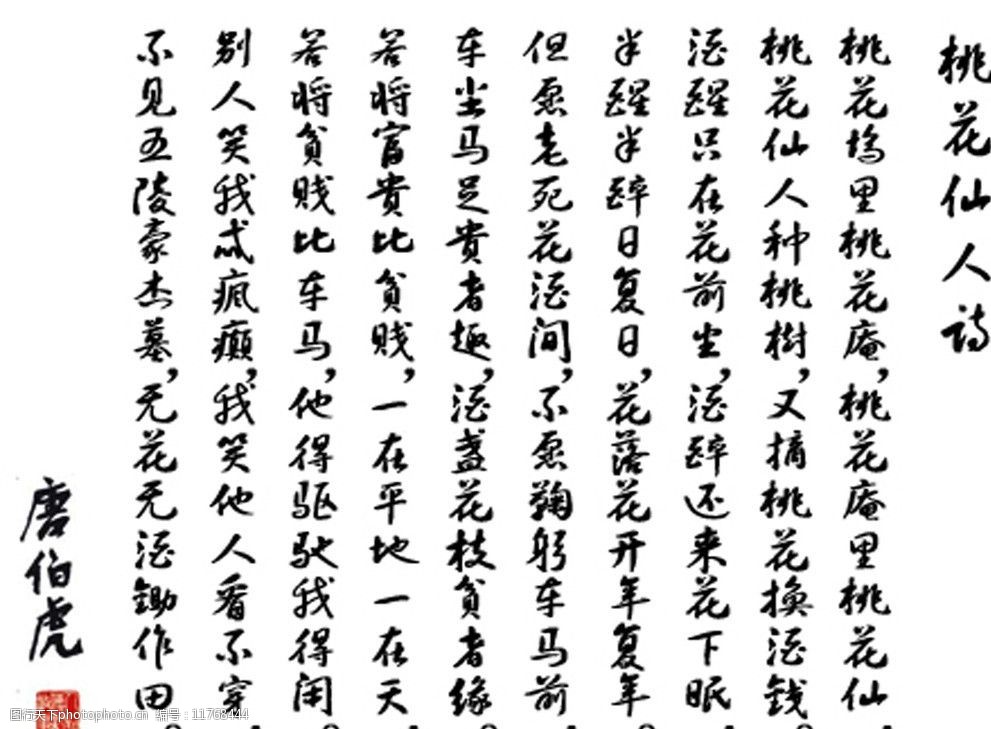 桃花仙人诗
桃花坞里桃花庵,桃花庵里桃花仙
桃花仙人种桃樹,又摘桃花换酒錢
酒醒只在花前坐,酒醉还来花下眠
半醒半醉日复日,花落花开年复年
但愿老死花酒间,不愿鞠躬车马前
车尘马足貴者趣,酒盏花枝貧者緣
若将富貴比貧贱,一在平地一在天
若将貧贱比车马,他得驱驰我得闲
别人笑我忒瘋癲,我笑他人看不穿
不见五陵豪杰墓,无花无酒鋤作田
唐伯虎
图行天下photophoto.cn 编号:11768444